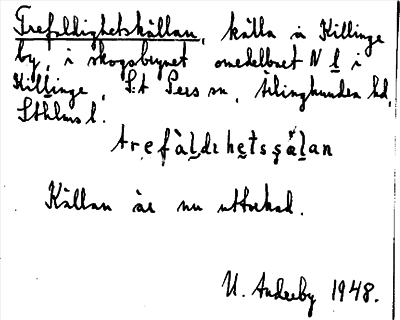 Trefaldighetskällan, källa å Killinge
by, i skogsbrynet omedelbart N l i
Killinge, S:t Pers sn, Ärlinghundra hd,
Sthlms l.
trefàldihetsşälan
Källan är nu uttorkad.
U. Anderby 1948.